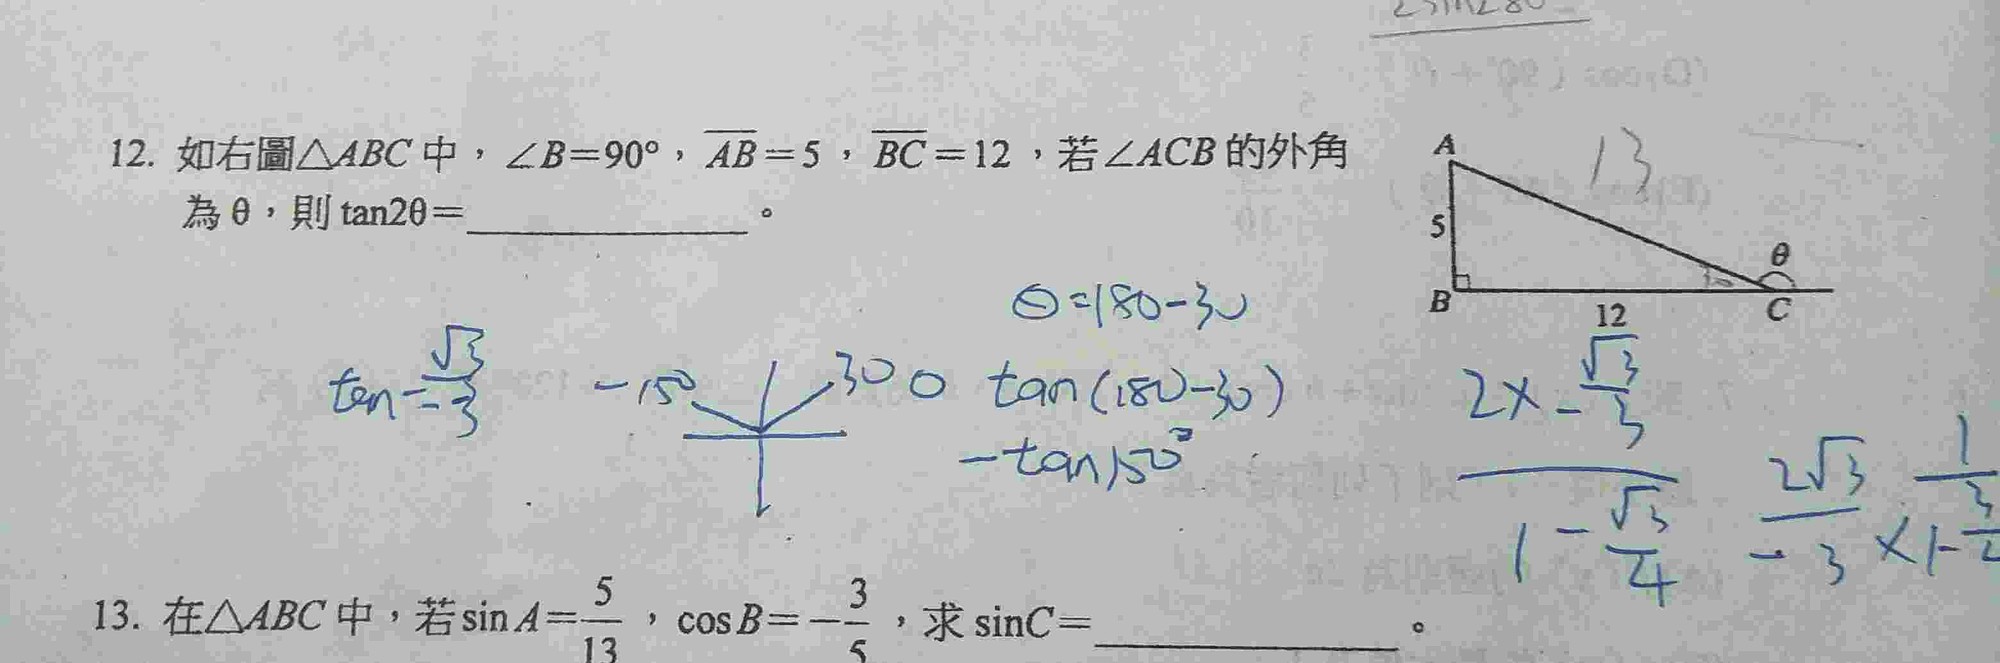 12. 如右圖△ABC中，∠B=90°，AB=5，BC=12，若∠ACB的外角
為θ，則tan2θ=____________。
A
13
5
θ
B
12
C
θ=180-30
tan = √3/-3
-150
30
tan(180-30)
-tan150°
2×-√3/3
1-√3/4
2√3/-3 × 1/1-
13. 在△ABC中，若sinA=5/13，cosB=-3/5，求sinC=____________。